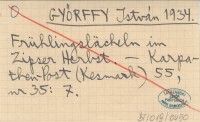 GYÖRFFY István 1934.
Frühlingslächeln im
Zipser Herbst. — Karpa-
then-Post (Kesmark) 55,
nr 35: 7.